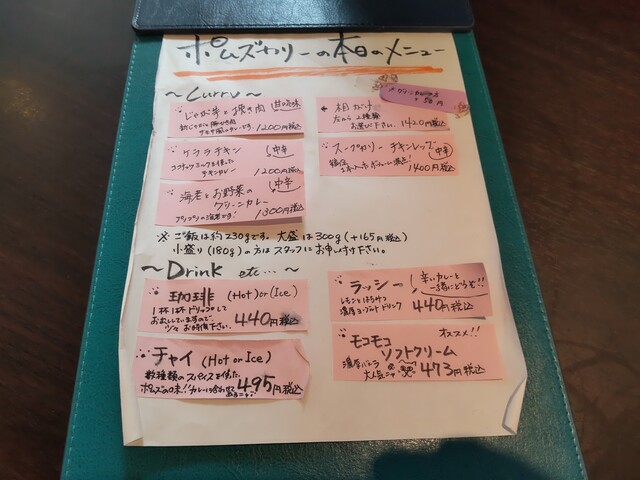 ポムズカリーの本日のメニュー
～Curry～
じゃが芋と挽き肉
1200円税込
ケララチキン 中辛
ココナッツミルクを使った
チキンカレー 1200円税込
海老とお野菜の
グリーンカレー 中辛
プリプリの海老です! 1300円税込
相がけ
左から2種類
お選び下さい。 1420円税込
スープカリー チキンレッグ 中辛
1400円税込
※ご飯は約230gです。大盛は300g(+165円税込)
小盛り(180g)の方はスタッフにお申し付け下さい。
～Drink etc...～
珈琲 (Hot) or (Ice)
1杯1杯ドリップして
お出ししていますので、
少々お時間下さい。 440円税込
チャイ (Hot or Ice)
数種類のスパイスを使った
ポムズの味!!カレーに合わせて 495円税込
ラッシー 辛いカレーと
一緒にどうぞ!!
レモンとはちみつ
濃厚ヨーグルトドリンク 440円税込
モコモコ オススメ!!
ソフトクリーム
濃厚バニラ
473円税込